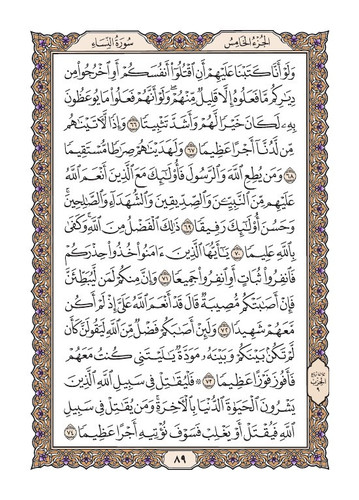 الجُزْءُ الخَامِسُ سُورَةُ النِّسَاءِ
وَلَوْ أَنَّا كَتَبْنَا عَلَيْهِمْ أَنِ اقْتُلُوا أَنفُسَكُمْ أَوِ اخْرُجُوا مِن
دِيَارِكُم مَّا فَعَلُوهُ إِلَّا قَلِيلٌ مِّنْهُمْ وَلَوْ أَنَّهُمْ فَعَلُوا مَا يُوعَظُونَ
بِهِ لَكَانَ خَيْرًا لَّهُمْ وَأَشَدَّ تَثْبِيتًا ٦٦ وَإِذًا لَّآتَيْنَاهُم
مِّن لَّدُنَّا أَجْرًا عَظِيمًا ٦٧ وَلَهَدَيْنَاهُمْ صِرَاطًا مُّسْتَقِيمًا
٦٨ وَمَن يُطِعِ اللَّهَ وَالرَّسُولَ فَأُولَٰئِكَ مَعَ الَّذِينَ أَنْعَمَ اللَّهُ
عَلَيْهِم مِّنَ النَّبِيِّينَ وَالصِّدِّيقِينَ وَالشُّهَدَاءِ وَالصَّالِحِينَ
وَحَسُنَ أُولَٰئِكَ رَفِيقًا ٦٩ ذَٰلِكَ الْفَضْلُ مِنَ اللَّهِ وَكَفَىٰ
بِاللَّهِ عَلِيمًا ٧٠ يَا أَيُّهَا الَّذِينَ آمَنُوا خُذُوا حِذْرَكُمْ
فَانفِرُوا ثُبَاتٍ أَوِ انفِرُوا جَمِيعًا ٧١ وَإِنَّ مِنكُمْ لَمَن لَّيُبَطِّئَنَّ
فَإِنْ أَصَابَتْكُم مُّصِيبَةٌ قَالَ قَدْ أَنْعَمَ اللَّهُ عَلَيَّ إِذْ لَمْ أَكُن
مَّعَهُمْ شَهِيدًا ٧٢ وَلَئِنْ أَصَابَكُمْ فَضْلٌ مِّنَ اللَّهِ لَيَقُولَنَّ كَأَن
لَّمْ تَكُن بَيْنَكُمْ وَبَيْنَهُ مَوَدَّةٌ يَا لَيْتَنِي كُنتُ مَعَهُمْ
فَأَفُوزَ فَوْزًا عَظِيمًا ٧٣ فَلْيُقَاتِلْ فِي سَبِيلِ اللَّهِ الَّذِينَ
يَشْرُونَ الْحَيَاةَ الدُّنْيَا بِالْآخِرَةِ وَمَن يُقَاتِلْ فِي سَبِيلِ
اللَّهِ فَيُقْتَلْ أَوْ يَغْلِبْ فَسَوْفَ نُؤْتِيهِ أَجْرًا عَظِيمًا ٧٤
٨٩